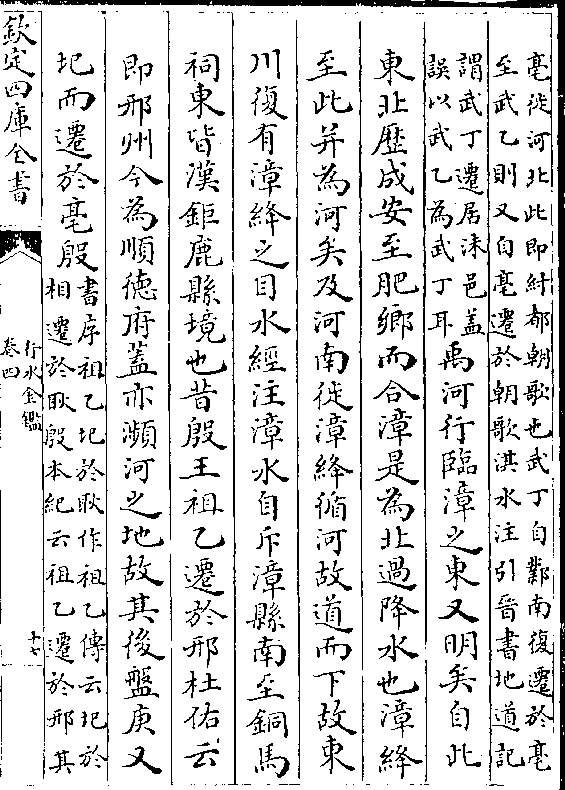 亳徙河北此即紂都朝歌也武丁自鄴南復遷於亳
至武乙則又自亳遷於朝歌淇水注引晉書地道記
謂武丁遷居沬邑蓋
誤以武乙為武丁耳
禹河行臨漳之東又明矣自此
東北歷成安至肥鄉而合漳是為北過降水也漳絳
至此并為河矣及河南徙漳絳循河故道而下故東
川復有漳絳之目水經注漳水自斥漳縣南至銅馬
祠東皆漢鉅鹿縣境也昔殷王祖乙遷於邢杜佑云
即邢州今為順德府蓋亦瀕河之地故其後盤庚又
圯而遷於亳殷
書序祖乙圯於耿作祖乙傳云圯於
相遷於耿殷本紀云祖乙遷於邢其
欽定四庫全書
行水金鑑
卷四
十七